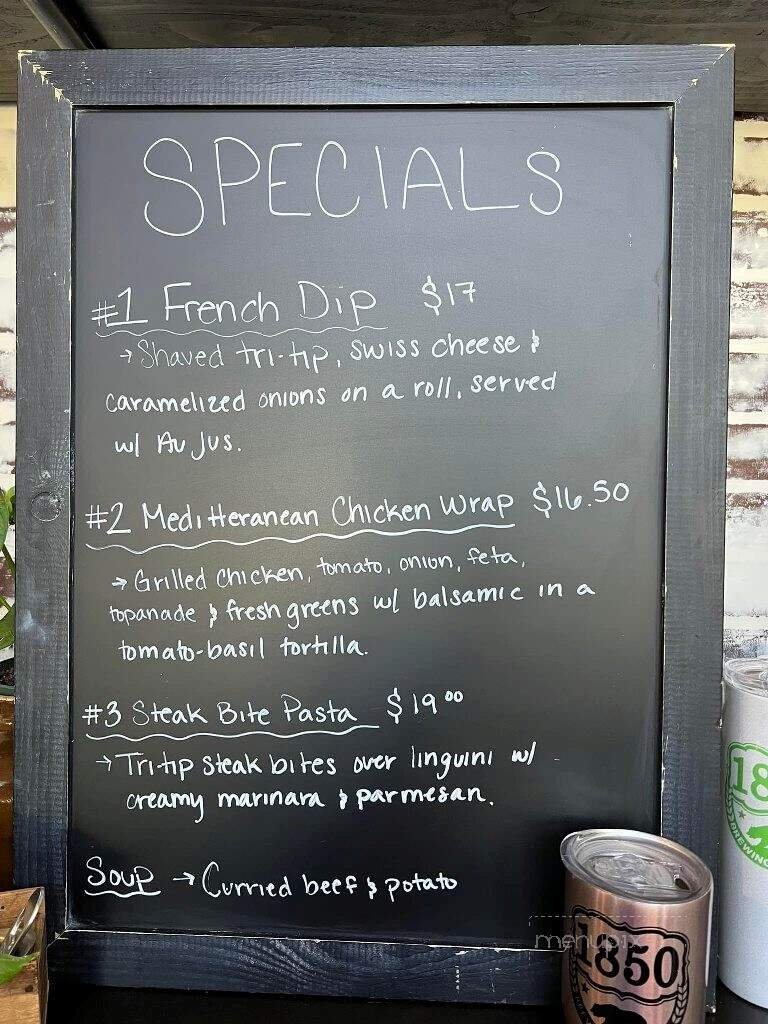 SPECIALS
#1 French Dip $17
→ Shaved tri-tip, swiss cheese &
caramelized onions on a roll, served
w/ Au Jus.
#2 Mediteranean Chicken Wrap $16.50
→ Grilled chicken, tomato, onion, feta,
topanade & fresh greens w/ balsamic in a
tomato-basil tortilla.
#3 Steak Bite Pasta $19.00
→ Tri-tip steak bites over linguini w/
creamy marinara & parmesan.
Soup → Curried beef & potato
menupix
1850
18
BREWING